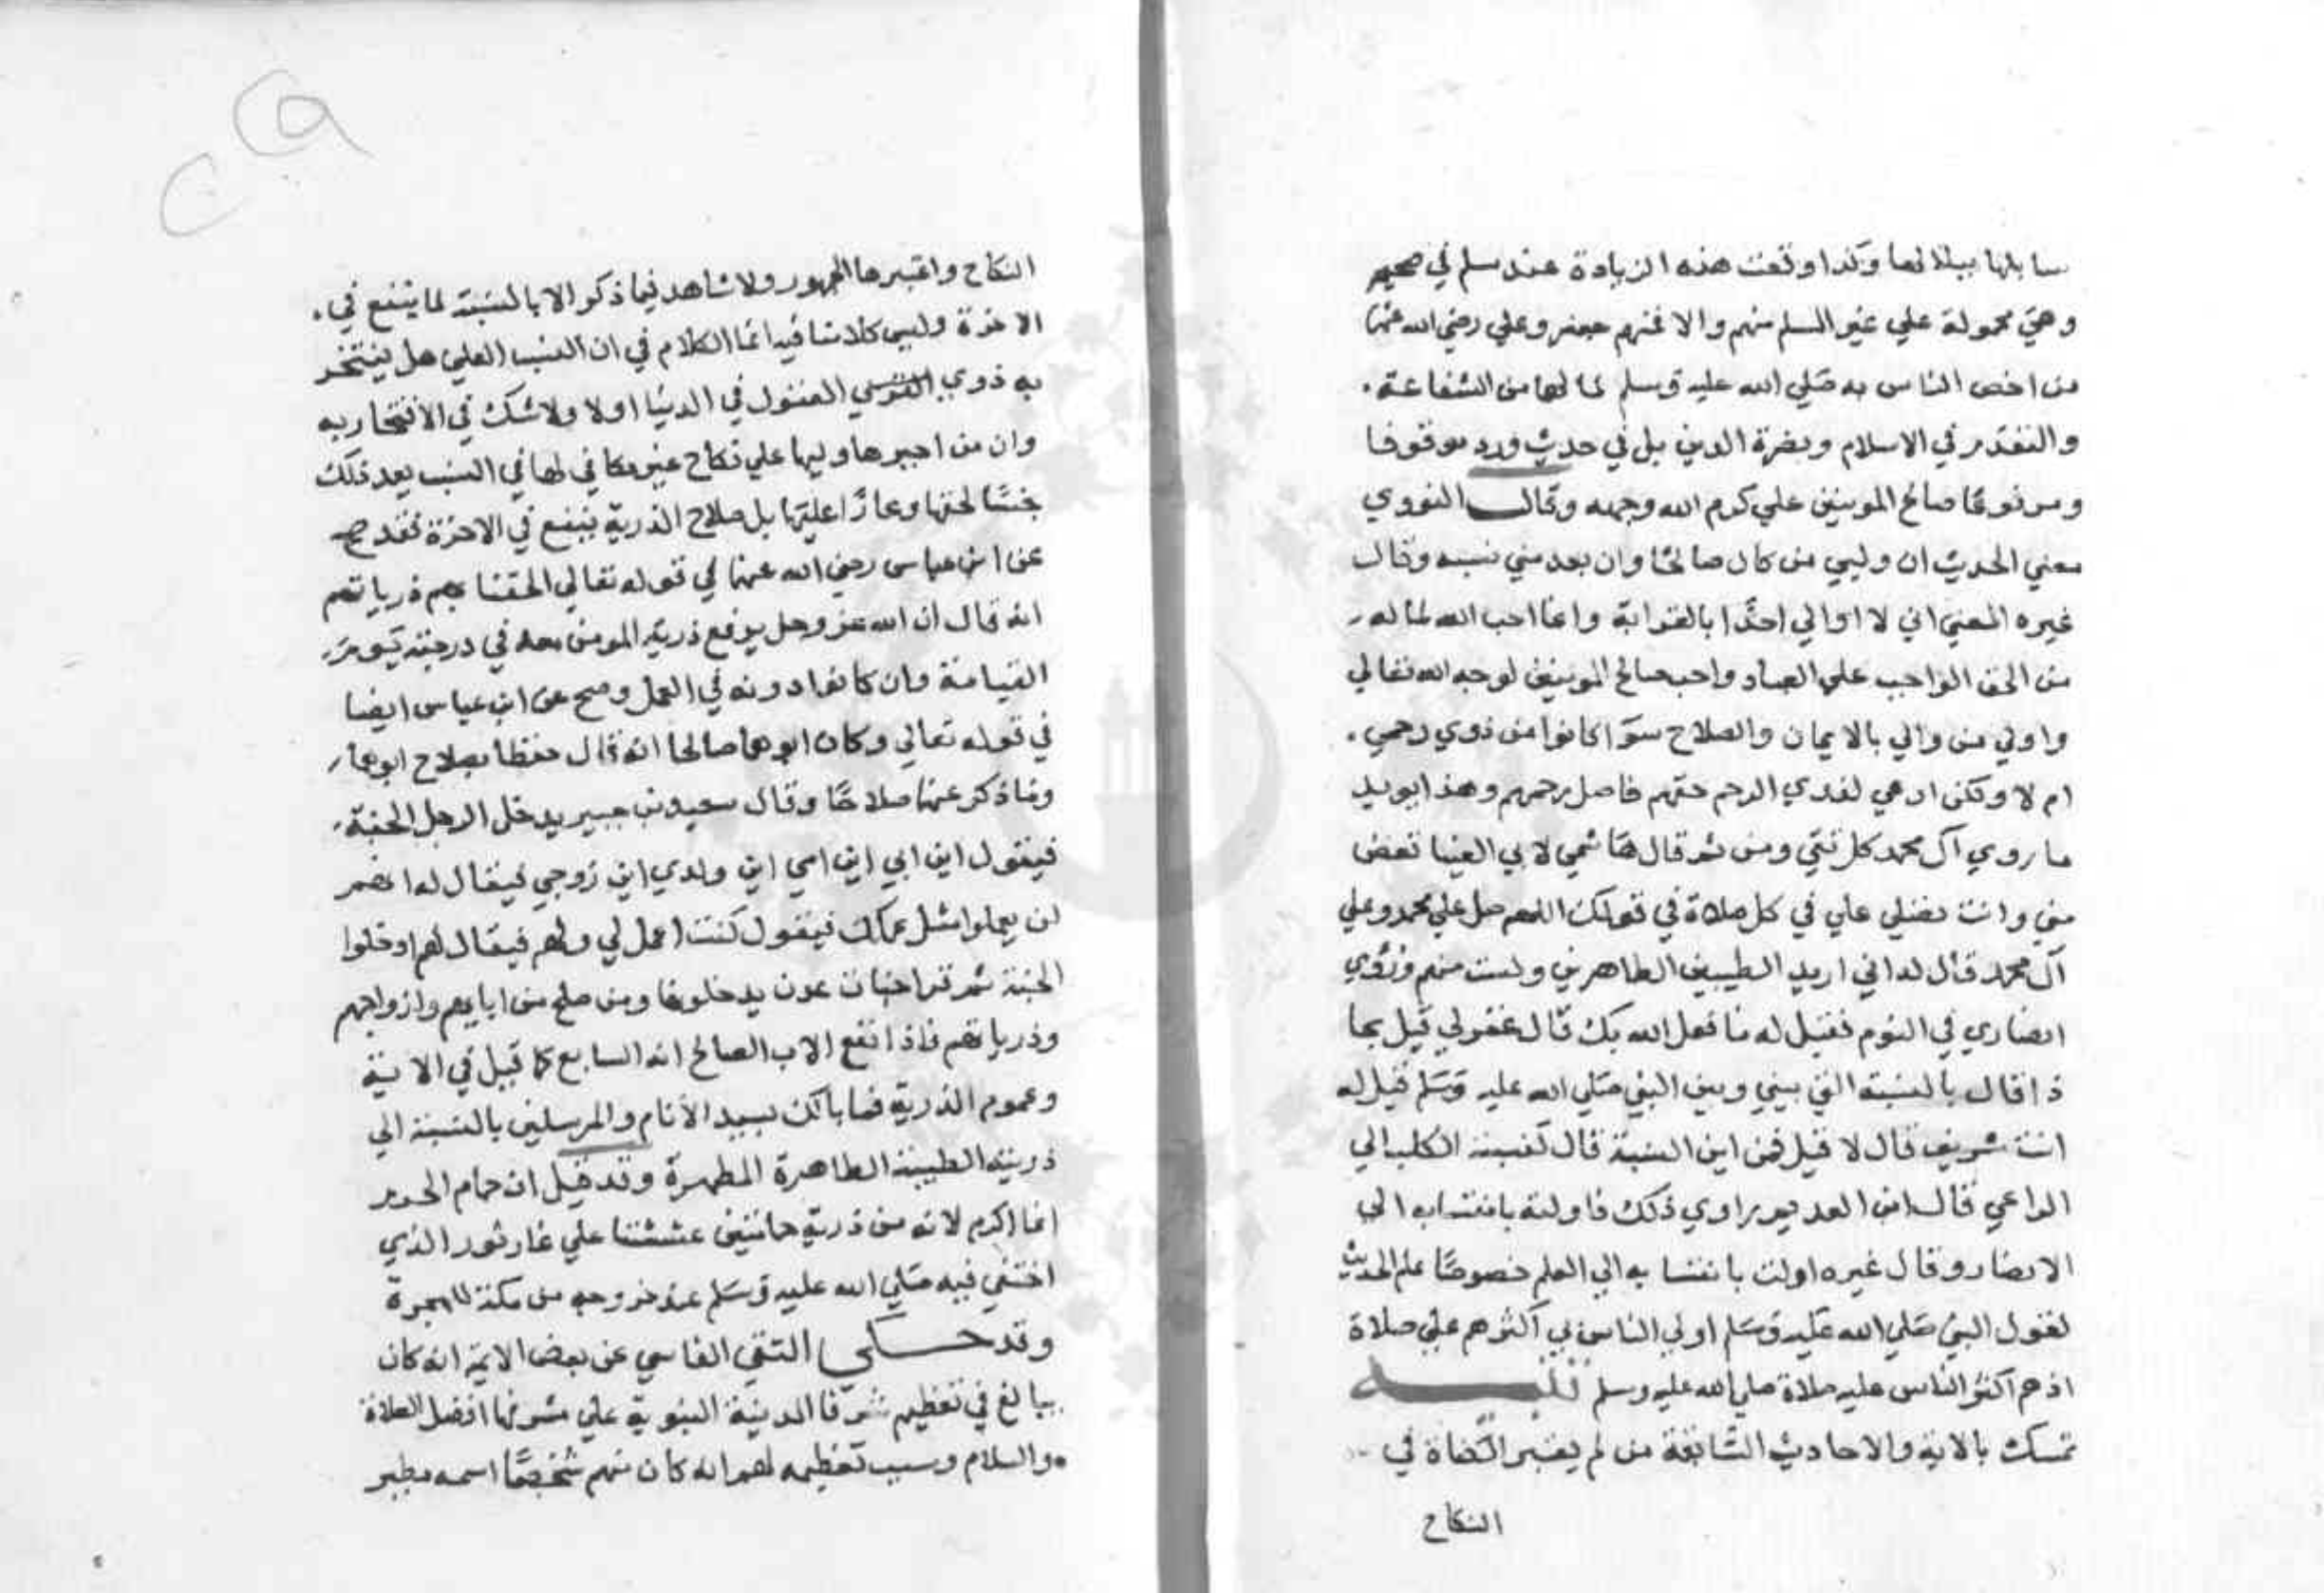 سابلها ببلالها وكذا وقعت هذه الزيادة عند مسلم في صحيحه
وهي محمولة علي غير المسلم منهم والا فمنهم جعفر وعلي رضي الله عنهما
من اخص الناس به صلي الله عليه وسلم لما لهما من الشفاعة
والتقدم في الاسلام ونصرة الدين بل في حديث ورد موقوفا
ومرفوعا صالح المومنين علي كرم الله وجهه وقال النووي
معني الحديث ان وليي من كان صالحا وان بعد مني نسبه وقال
غيره المعني اني لا اوالي احدا بالقرابة وانما احب الله لما له
من الحق الواجب علي العباد واحب صالح المومنين لوجه الله تعالي
واولي من والي بالايمان والصلاح سوآ كانوا من ذوي رحمي
ام لا ولكن ارعي لذوي الرحم حقهم فاصل رحمهم وهذا يويد
ما روي آل محمد كل تقي ومن ثم قال هاشمي لابي العينا تغض
مني وانت تصلي علي في كل صلاة في قولك اللهم صل علي محمد وعلي
آل محمد قال له اني اريد الطيبين الطاهرين ولست منهم وروي
انصاري في النوم فقيل له ما فعل الله بك قال غفر لي قيل بما
ذا قال بالنسبة التي بيني وبين النبي صلي الله عليه وسلم قيل له
انت شريف قال لا قيل فمن اين النسبة قال كنسبة الكلب الي
الراعي قال ابن العديم راوي ذلك فاولته بانتسابه الي
الانصار وقال غيره اولت بانتسابه الي العلم خصوصا علم الحديث
لقول النبي صلي الله عليه وسلم اولي الناس بي اكثرهم علي صلاة
اذ هم اكثر الناس عليه صلاة صلي الله عليه وسلم تنبيه
تمسك بالاية والاحاديث السابقة من لم يعتبر الكفاة في
النكاح
النكاح واعتبرها الجمهور ولا شاهد فيما ذكر الا بالنسبة لما ينفع في
الاخرة وليس كلامنا فيه انما الكلام في ان النسب العلي هل يفتخر
به ذوي العقول في الدنيا اولا ولا شك في الافتخار به
وان من اجبرها وليها علي نكاح غير مكافي لها في النسب يعد ذلك
بخسا لحقها وعارا عليها بل صلاح الذرية ينفع في الاخرة فقد صح
عن ابن عباس رضي الله عنهما في قوله تعالي الحقنا بهم ذرياتهم
انه قال ان الله عز وجل يرفع ذرية المومن معه في درجته يوم
القيامة وان كانوا دونه في العمل وصح عن ابن عباس ايضا
في قوله تعالي وكان ابوهما صالحا انه قال حفظا بصلاح ابوهما
وما ذكر عنهما صلاحا وقال سعيد بن جبير يدخل الرجل الجنة
فيقول اين ابي اين امي اين ولدي اين زوجي فيقال له انهم
لن يعملوا مثل عملك فيقول كنت اعمل لي ولهم فيقال لهم ادخلوا
الجنة ثم قرا جنات عدن يدخلونها ومن صلح من ابايهم وازواجهم
وذرياتهم فاذا نفع الاب الصالح انه السابع كما قيل في الاية
وعموم الذرية فما بالك بسيد الأنام والمرسلين بالنسبة الي
ذريته الطيبة الطاهرة المطهرة وقد قيل ان حمام الحرم
انما اكرم لانه من ذرية حمامتين عششتا علي غار ثور الذي
اختفي فيه صلي الله عليه وسلم عند خروجه من مكة للهجرة
وقد حكي التقي الفاسي عن بعض الايمة انه كان
يبالغ في تعظيم شرفا المدينة النبوية علي مشرفها افضل الصلاة
والسلام وسبب تعظيمه لهم انه كان منهم شخصا اسمه مطير